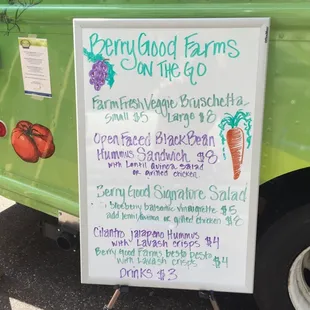 Berry Good Farms
on the go
Farm Fresh Veggie Bruschetta
Small $5 Large $8
Open Faced Black Bean
Hummus Sandwich $8
with Lentil Quinoa Salad
or grilled chicken
Berry Good Signature Salad
blueberry balsamic vinaigrette $5
add lentil/quinoa or grilled chicken $8
Cilantro Jalapeno Hummus
with Lavash crisps $4
Berry Good Farms besto pesto
with Lavash crisps $4
Drinks $3